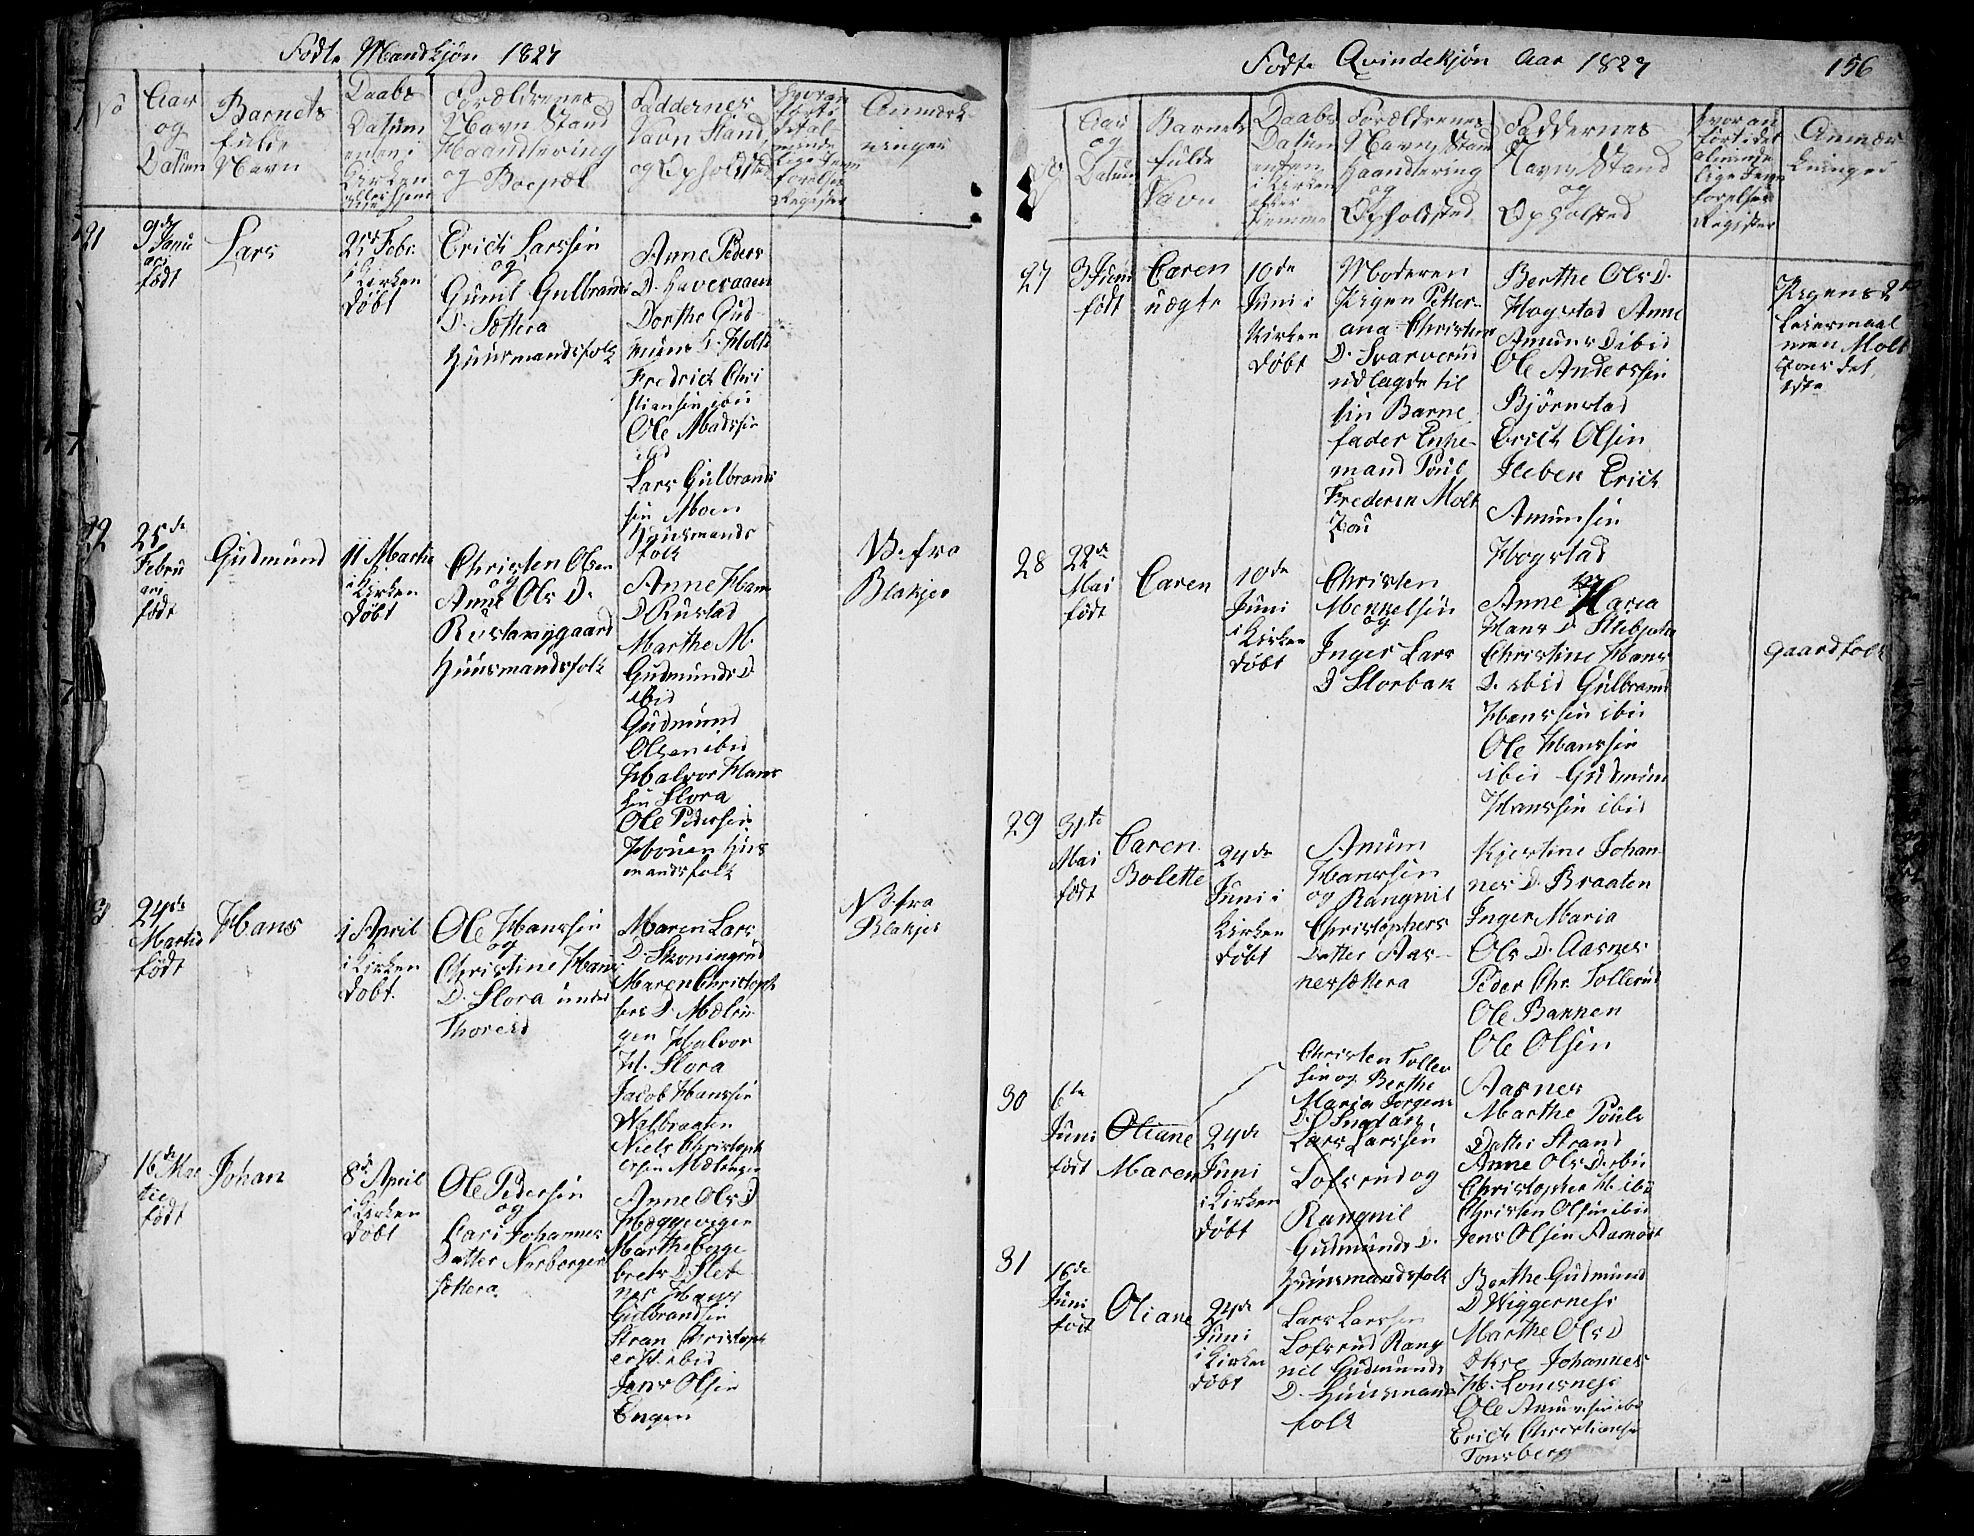 Født Mandkjøn 1827
No
Aar
og
Datum
Barnets
fulde
Navn
Daabs
Datum
enten i
Kirken
eller hjem
Forældrenes
Navn Stand
Haandtering
og Boepæl
Faddernes
Navn Stand
og Opholdsted
Hvor an
ført i
det al
minde
lige Jevn
førelses
Register
Anmærk
ninger
21
9de
Janu
ar
født
Lars
25d Febr.
i Kirken
døbt
Erick Larssin
og
Gunil Gulbrands
D. Sættera
Huusmandsfolk
Anne Peders
D. Haveraaen
Dorthe Gud
muns D. Holt
Fredrick Chri
stiansin ibid
Ole Madssin
ibid
Lars Gulbrands
sin Moen
Huusmands
folk
22
25de
Febru
ari
født
Gudmund
11 Martii
i Kirken
døbt
Christen Olsen
og
Anne Ols D.
Rustanygaard
Huusmandsfolk
Anne Hans
D Rustad
Marthe M.
Gudmunds D.
ibid
Gudmund
Olsen ibid
Halvor Hans
sin Flora
Ole Pedersin
Mouen Huus
mandsfolk
N. fra
Blakjer
3
24de
Martii
født
Hans
1 April
i Kirken
døbt.
Ole Hanssin
og
Christine Hans
D. Flora under
Thoreid
Maren Lars
D. Skoningrud
Maren Christoph
hers D. Mælin
gen Halvor
H. Flora
Jacob Hanssin
Walbraaten
Niels Christoph
ersin Mælingen
N. fra
Blakjer
16de Mar
tie
født
Johan
8d April
i Kirken
døbt
Ole Pedersin
og
Kari Johannes
Datter Norberger
sættera
Anne Ols D
Hæggevigen
Marthe Inge
brets D. Slet
nes Hans
Gulbrandsin
Stran Christoph
er H. ibid
Jens Olsin
Engen
Født Qvindekjøn Aar 1827
156
Aar
og
Datum
Barnets
fulde
Navn
Daabs
Datum
enten
i Kirken
eller
hjemme
Forældrenes
Navn Stand
Haandtering
og
Opholdsted
Faddernes
Navn Stand
og
Opholsted
Hvor an
ført i det
alminde
lige Jevn
førelses
Register
Anmær
kninger
27
3 Juni
født
Caren
uægte
10de
Juni i
Kirken
døbt
Moderen
Pigen Petter-
ana Christen
D. Svarverud
udlagde til
sin Barne
fader Enke-
mand Poul
Frederin Molt
zou
Berthe Ols D.
Hogstad Anne
Amuns D ibid
Ole Anderssin
Bjørnstad
Erick Olsin
Ileben Erick
Amunsin
Hogstad
Pigens 2det
Leiermaal
men Molt
zous det
1ste
28
22de
Mai
født
Caren
10de
Juni
i Kirken
døbt
Christen
Menkelsin
og
Inger Lars
D Storbak
Anne Maria
Hans D.
Christine Hans
D. ibid Gulbrand
Hanssin ibid
Ole Hanssin
ibid Gudmund
Hanssin ibid
gaardfolk
29
31te
Mai
født
Caren
Bolette
24de
Juni i
Kirken
døbt
Amun
Hanssin
og Rangnil
Christophers
Datter Aas-
nersættera
Kjerstine Johan
nes D. Braaten
Inger Maria
Ols D. Aasnes
Peder Chr. Tollerud
Ole Bakken
Ole Olsin
Aasnes
30
6te
Juni
født
Oliane
Maren
24de
Juni
i Kirken
døbt
Christen Tollev
sin og Berthe
Maria Jørgens
D.
Lars Larssin
Lofsrud og
Rangnil
Gudmunds D.
Huusmandsfolk
Marthe Pouls
Datter Strand
Anne Ols D. ibid
Christopher H. ibid
Christen Olsin ibid
Jens Olsin Aamodt
31
16de
Juni
født
Oliane
24de
Juni
i Kirken
døbt
Lars Larssin
Lofsrud Rang
nil Gudmunds
D. Huusmands
folk
Berthe Gudmund
D Wiggerness
Marthe Ols D
Johannes
H. Tonsness
Ole Amunsin ibid
Erick Christiansin
Tonsberg